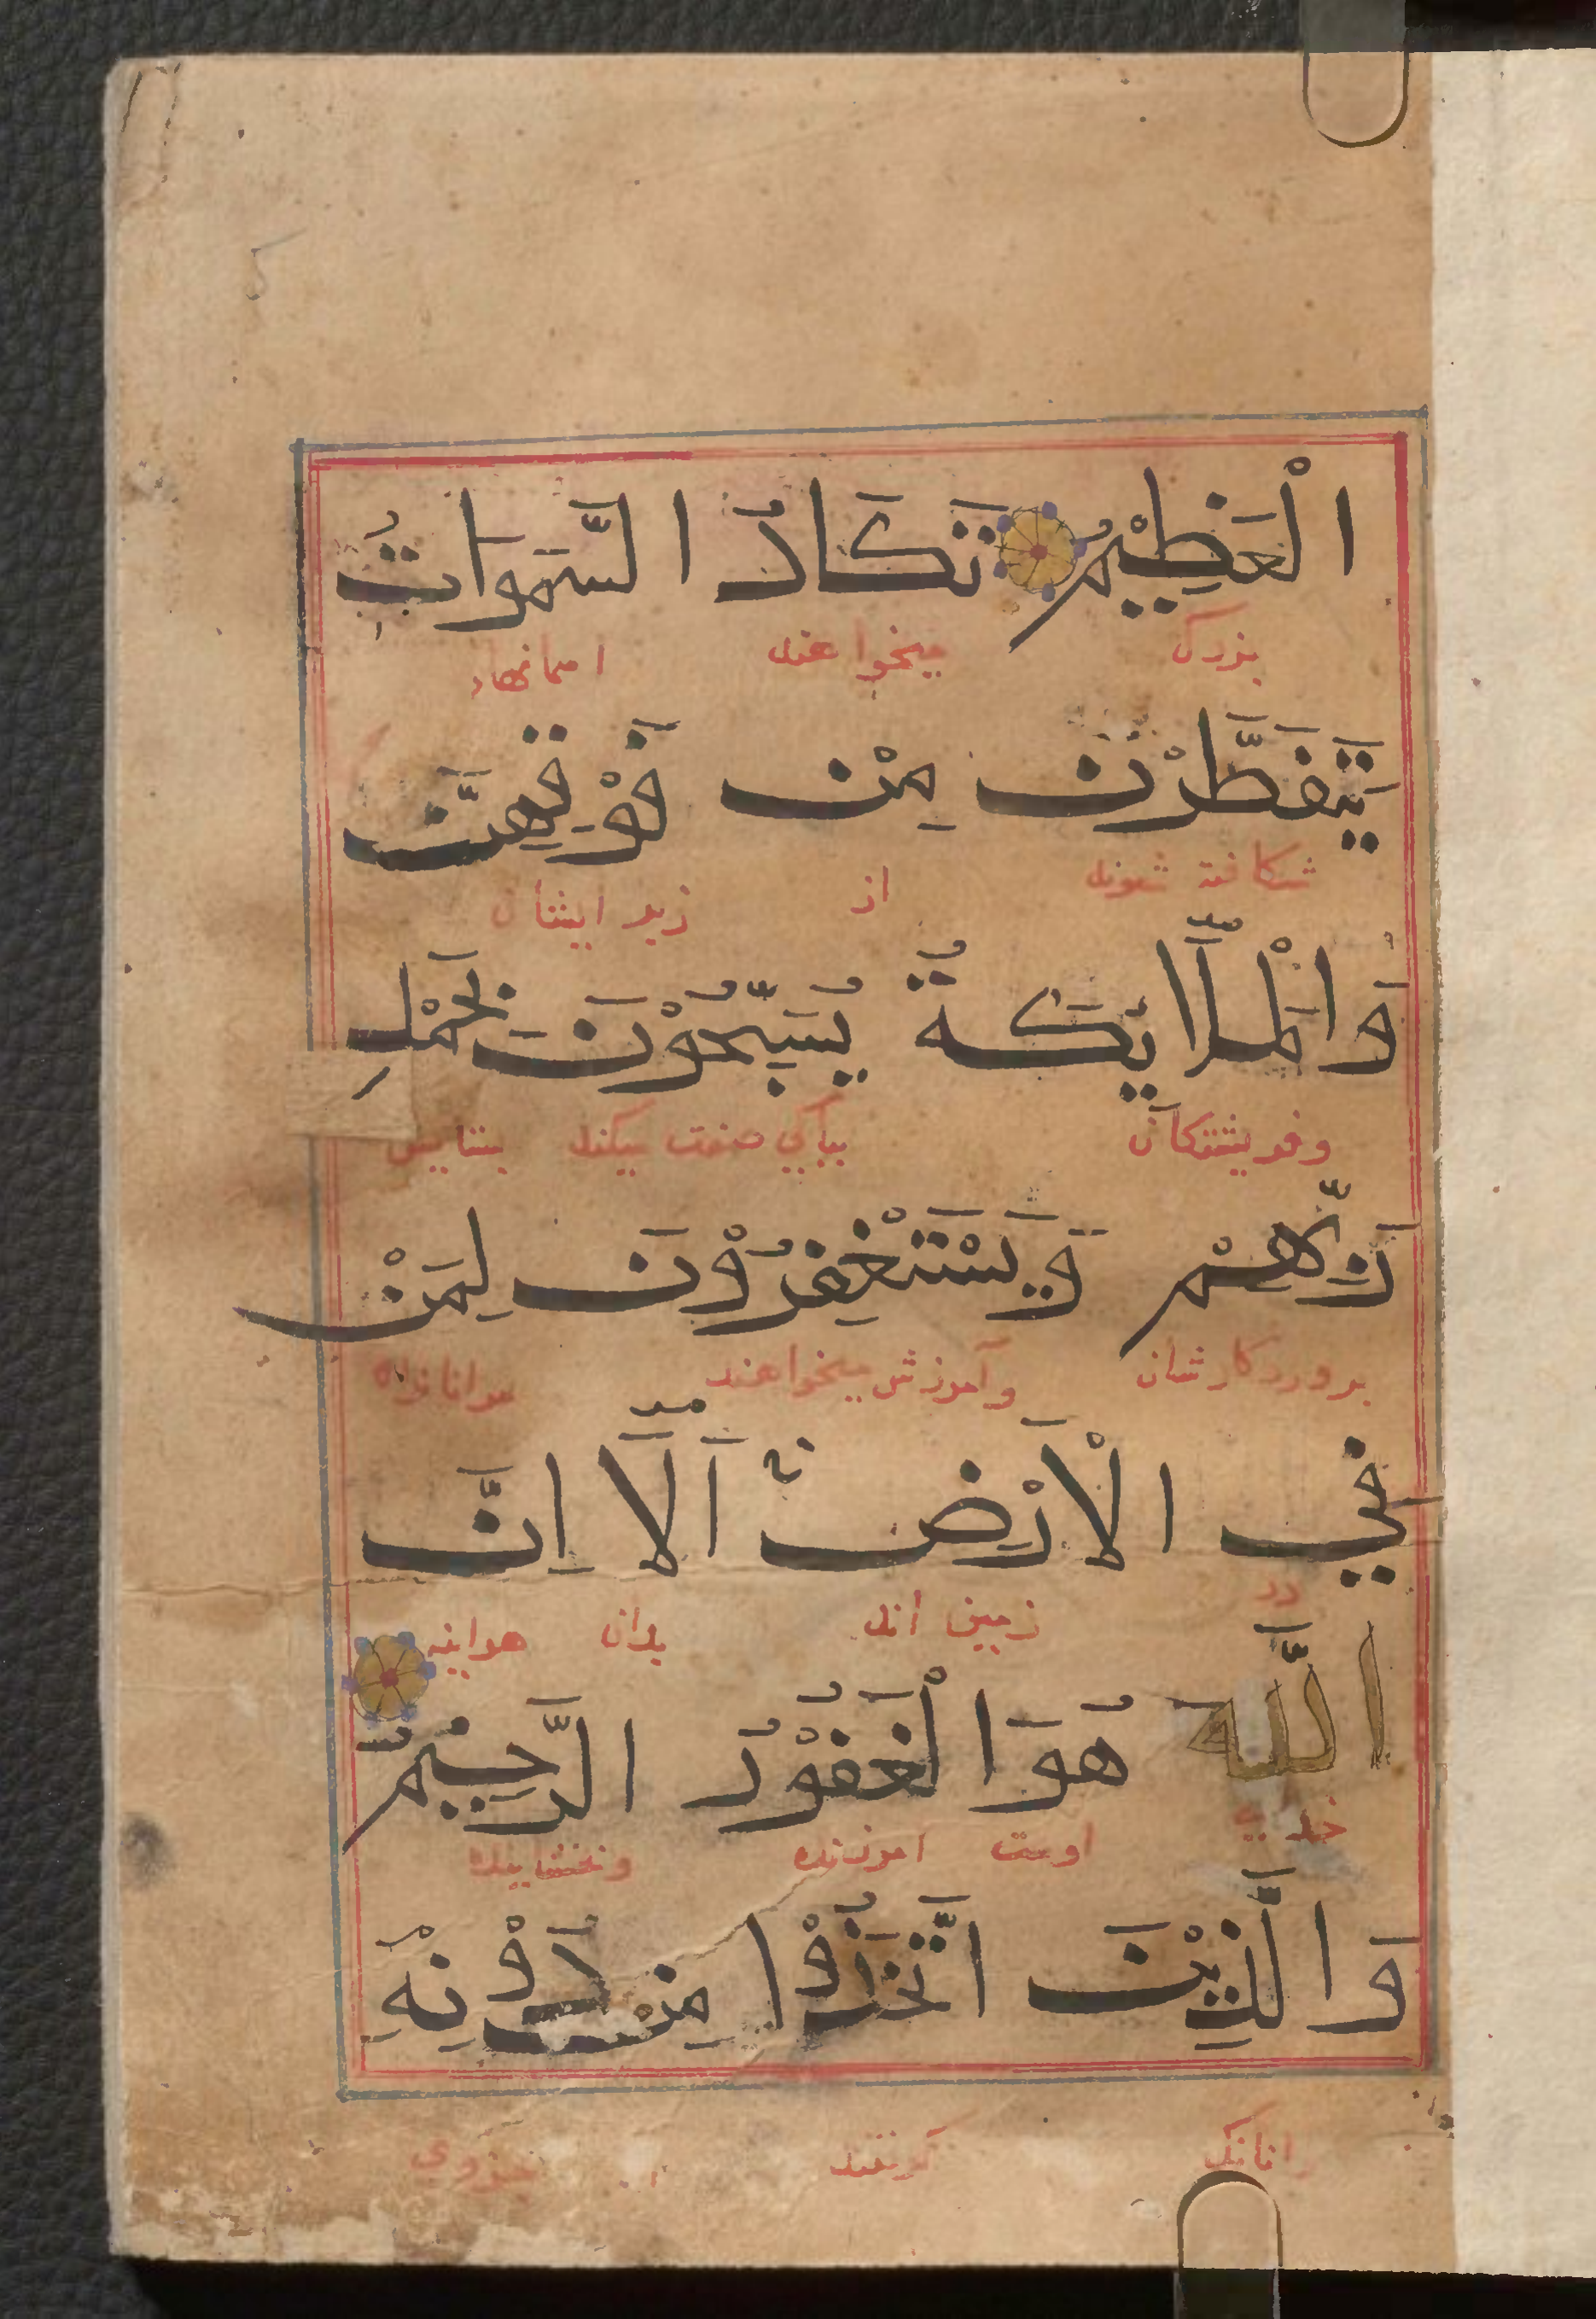 الْعَظِيْمُ تَكَادُ السَّمَوَاتُ
بزرک میخواهند اسمانها
يَتَفَطَّرْنَ مِنْ فَوْقِهِنَّ
شکافته شوند از زبر ایشان
وَالْمَلَآئِكَةُ يُسَبِّحُوْنَ بِحَمْدِ
وفریشتکان بپاکی صفت میکند بستایش
رَبِّهِمْ وَيَسْتَغْفِرُوْنَ لِمَنْ
پروردکارشان وآموزش میخواهند مرانانرا
فِي الْاَرْضِ اَلَآ اِنَّ
در زمین اند بدان هراینه
اللَّه هُوَ الْغَفُوْرُ الرَّحِيْمُ
خدای اوست امرزنده وبخشاینده
وَالَّذِيْنَ اتَّخَذُوْا مِنْ دُوْنِهِ
وانانک کرفتند از جزوی